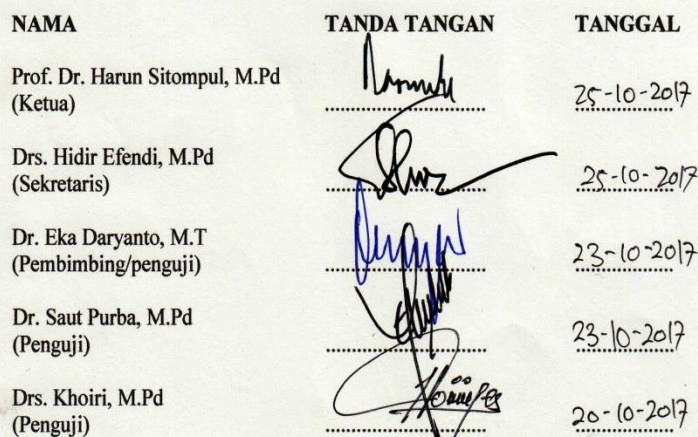 NAMA TANDA TANGAN TANGGAL
Prof. Dr. Harun Sitompul, M.Pd
(Ketua) 25-10-2017
Drs. Hidir Efendi, M.Pd
(Sekretaris) 25-10-2017
Dr. Eka Daryanto, M.T
(Pembimbing/penguji) 23-10-2017
Dr. Saut Purba, M.Pd
(Penguji) 23-10-2017
Drs. Khoiri, M.Pd
(Penguji) 20-10-2017